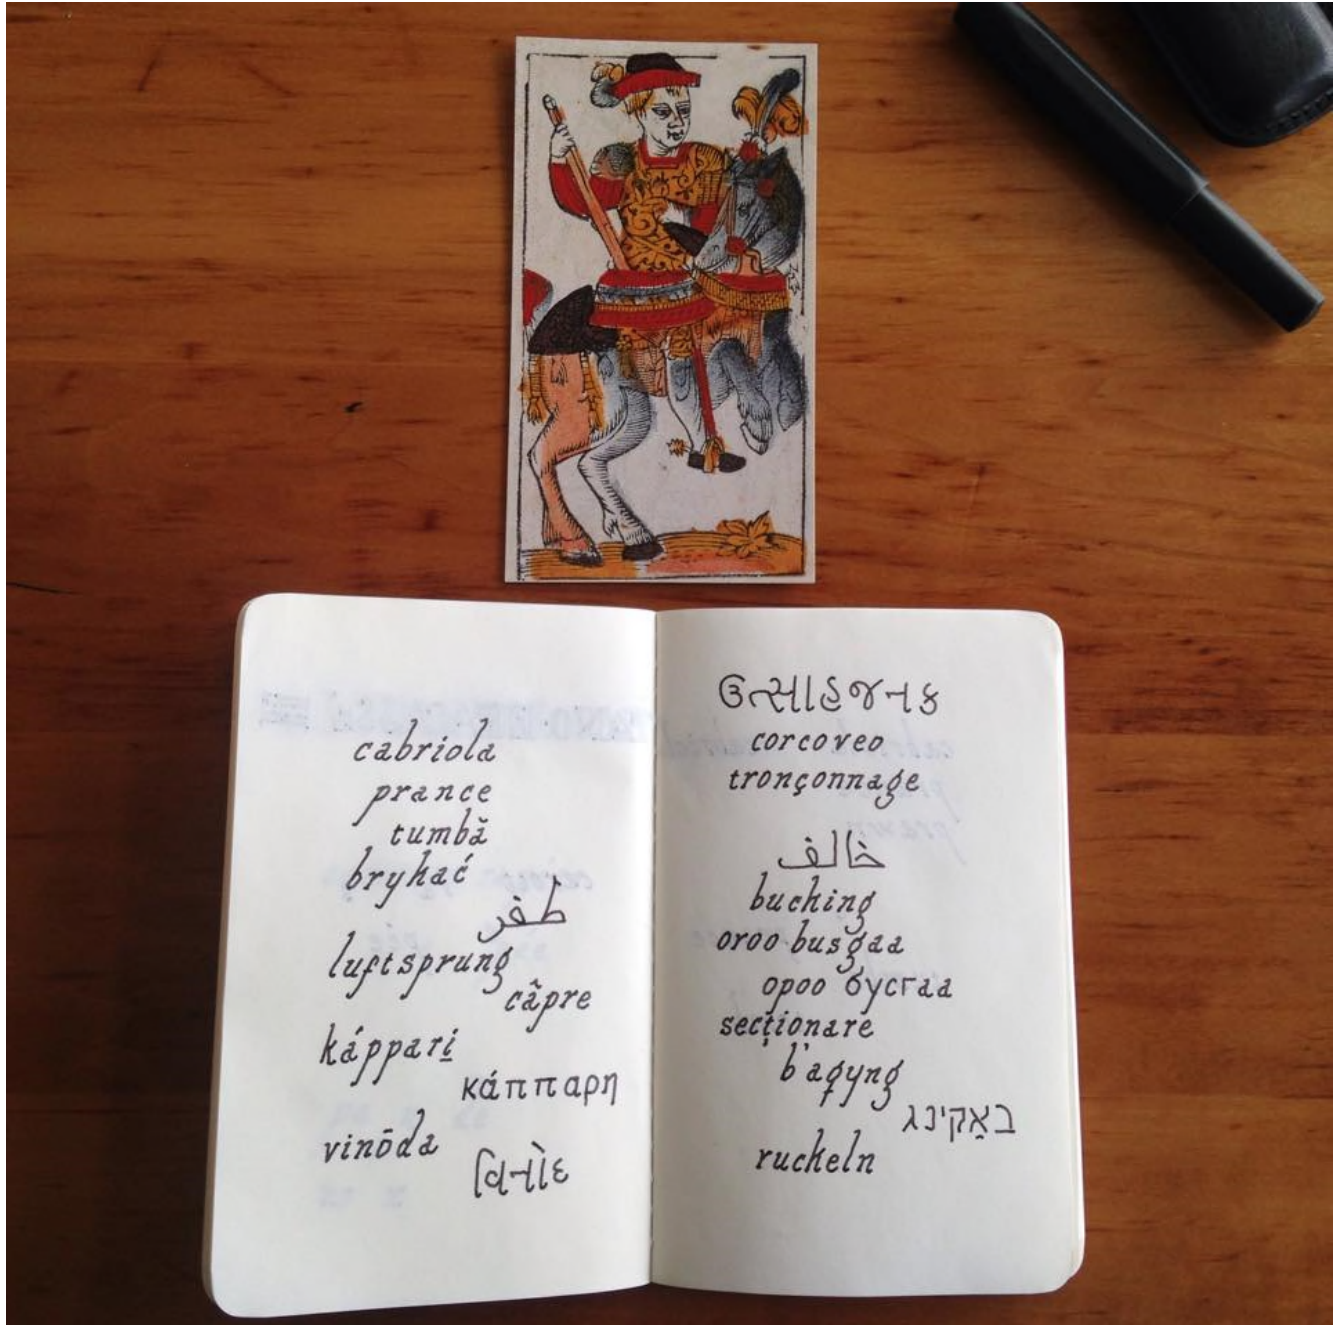 cabriola
prance
tumbă
brykać
طفر
luftsprung
cãpre
káppari
κάππαρη
vinōda
વિનોદ
ઉત્સાહજનક
corcoveo
tronçonnage
خالف
bucking
oroo busgaa
ороо бусгаа
secționare
b'aqyng
באַקינג
ruckeln